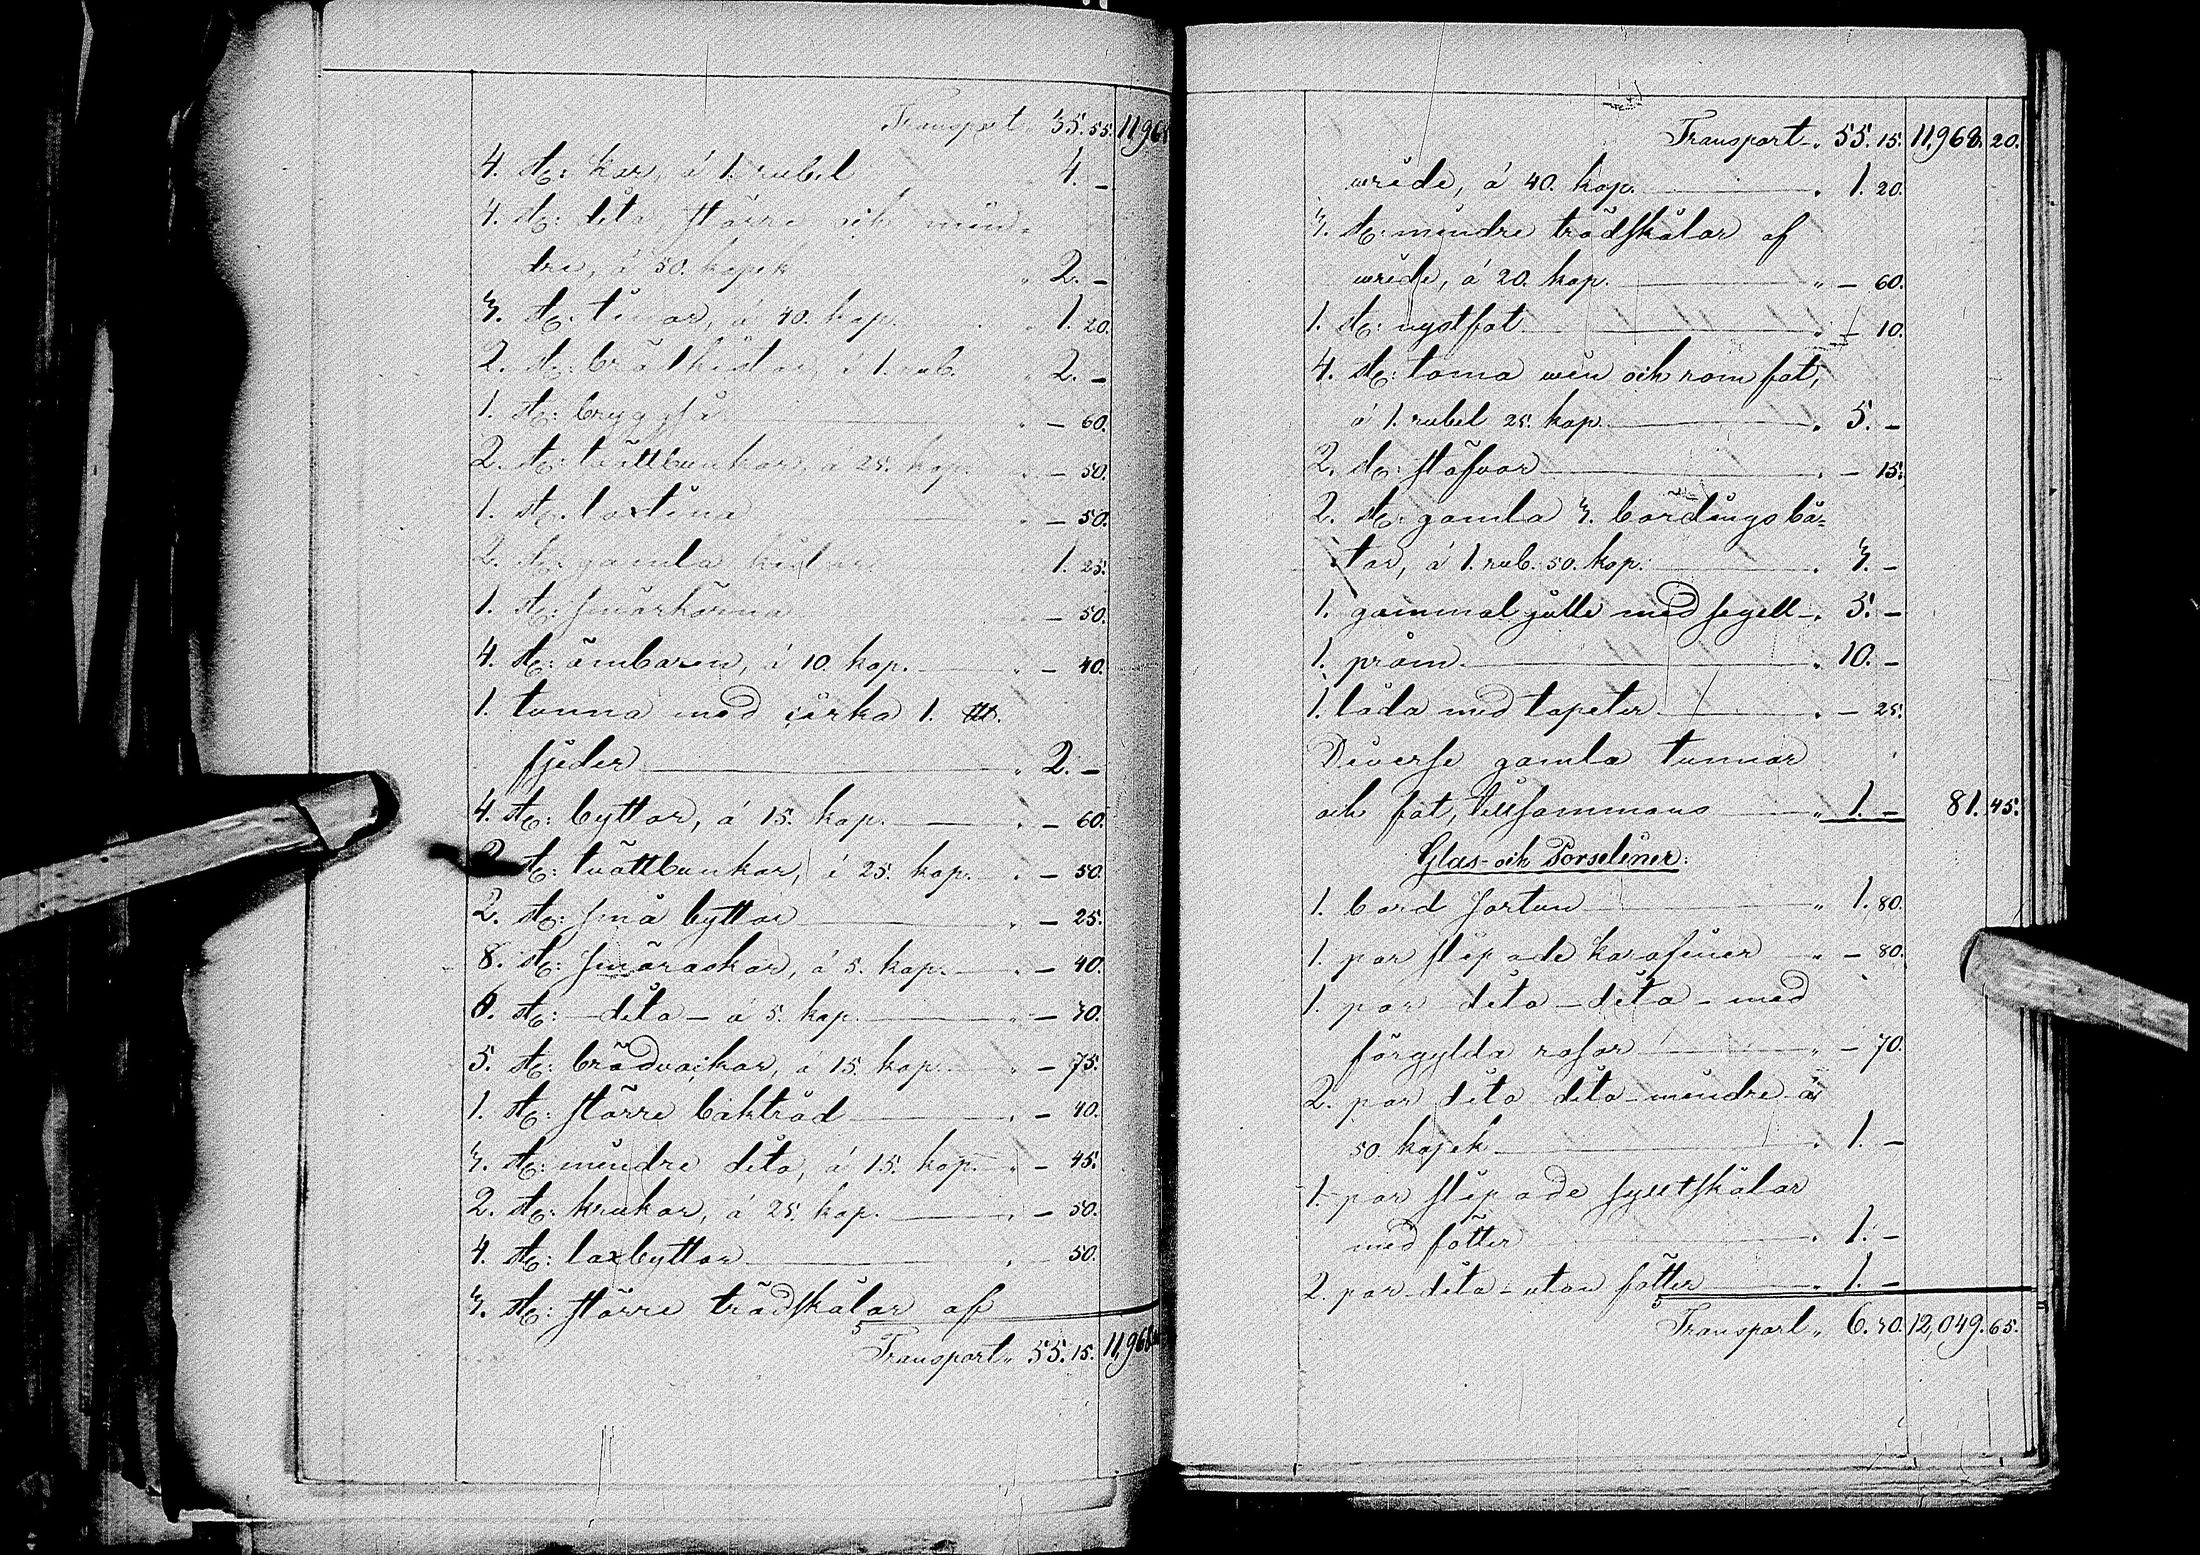 Transport „ 35. 55. 11,968
4. st: kar, á 1. rubel 4. –
4. st: dito större och min-
dre, á 50. kopek „ 2. –
3. st: tinor, á 40. kop. „ 1. 20.
2. st: brödkistor, á 1. rub. „ 2. –
1. st: bryggså „ – 60.
2. st: tvättbunkar, á 25. kop. „ – 50.
1. st: laxtina „ – 50.
2. st: gamla 1. 25.
1. st: smörkärna „ – 50.
4. st: ämbaren, á 10. kop. „ – 40.
1. tunna med cirka 1. ℔.
fjeder „ 2. –
4. st: byttor, á 15. kop. „ – 60.
2. st: tvättbunkar, á 25. kop. „ – 50.
2. st: små byttor „ – 25.
8. st: smöraskar, á 5. kop. „ – 40.
6. st: – dito – á 5. kop. „ – 30.
5. st: brödvackar, á 15. kop. „ – 75.
1. st: större baktråd „ – 40.
3. st: mindre dito, á 15. kop. „ – 45.
2. st: krukor, á 25. kop. „ – 50.
4. st: laxbyttor „ 50.
3. st: större trädskålar af
Transport „ 55. 15. 11,968
Transport „ 55. 15. 11,968. 20.
wride, á 40. kop. „ 1. 20.
3. st: mindre trädskålar af
wride, á 20. kop. „ – 60.
1. st: nystfat „ – 10.
4. st: toma win och rom fat,
á 1. rubel 25. kop. „ 5. –
2. st: stäfvor „ – 15.
2. st: gamla 3. bördingsbå-
tar, á 1. rub. 50. kop. „ 3. –
1. gammal julle med segell „ 5. –
1. pråm „ 10. –
1. låda med tapeter „ – 25.
Diverse gamla tunnor
och fat, tillsammans „ 1. – 81. 45.
Glas- och Porseliner:
1. bord sortun „ 1. 80.
1. par slipade karafiner „ – 80.
1. par dito – dito – med
förgylda rosor „ – 70.
2. par dito dito mindre á
50 kopek „ 1. –
1. par slipade syltskålar
med fötter „ 1. –
2. par – dito – utan fötter „ 1. –
Transport „ 6. 30. 12,049. 65.